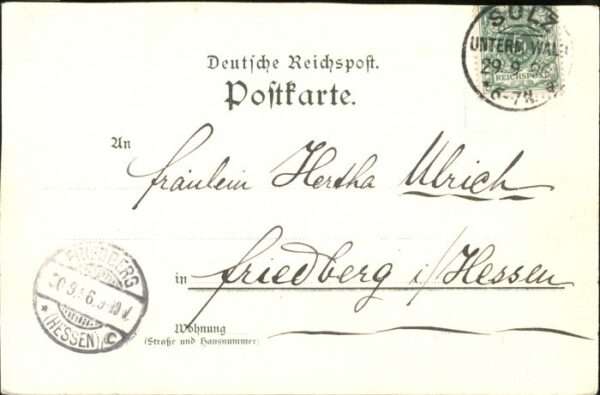 SULZ
UNTERM WALD
29 9 96
6-7N.
REICHSPOST
Deutsche Reichspost.
Postkarte.
An
Fräulein Hertha Ulrich
in Friedberg i/Hessen
Wohnung
(Straße und Hausnummer)
FRIEDBERG
30.9.96.9-10V.
* (HESSEN) C